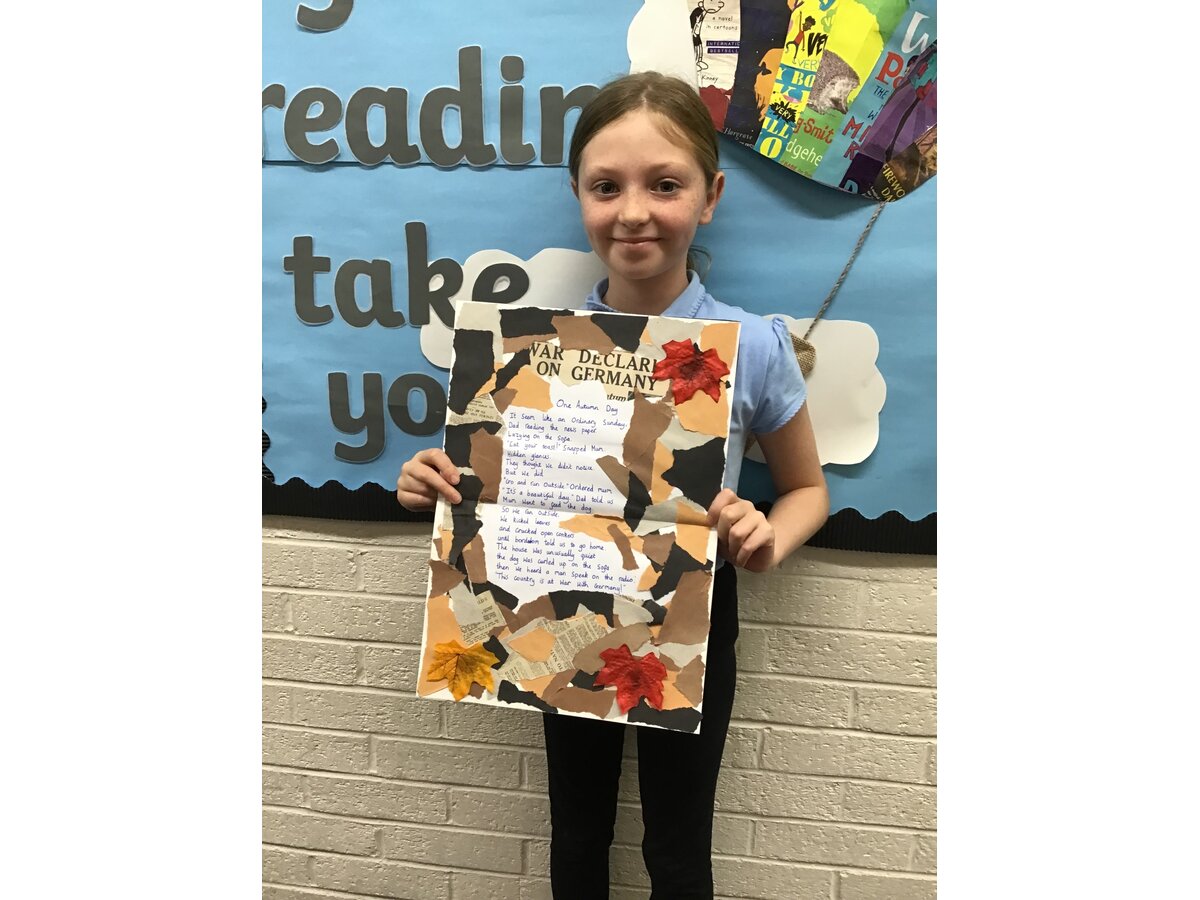 reading
take
you
a novel
in cartoons
INTERNATIONAL
BESTSELLER
Kinney
VERY
g-Smit
dgehe
WAR DECLARE
ON GERMANY
One Autumn Day
It seem like an Ordinary Sunday,
Dad reading the news paper
Lazying on the Sofa.
"Eat your toast!" Snapped Mum.
Hidden glances.
They thought we didn't notice
But we did.
"Go and run outside" Ordered mum.
"It's a beautiful day." Dad told us
Mum went to feed the dog.
So we ran outside.
We kicked leaves
and cracked open conkers
until bordom told us to go home
The house was unusually quiet
the dog was curled up on the Sofa
then we heard a man speak on the radio.
"This country is at war with Germany!"